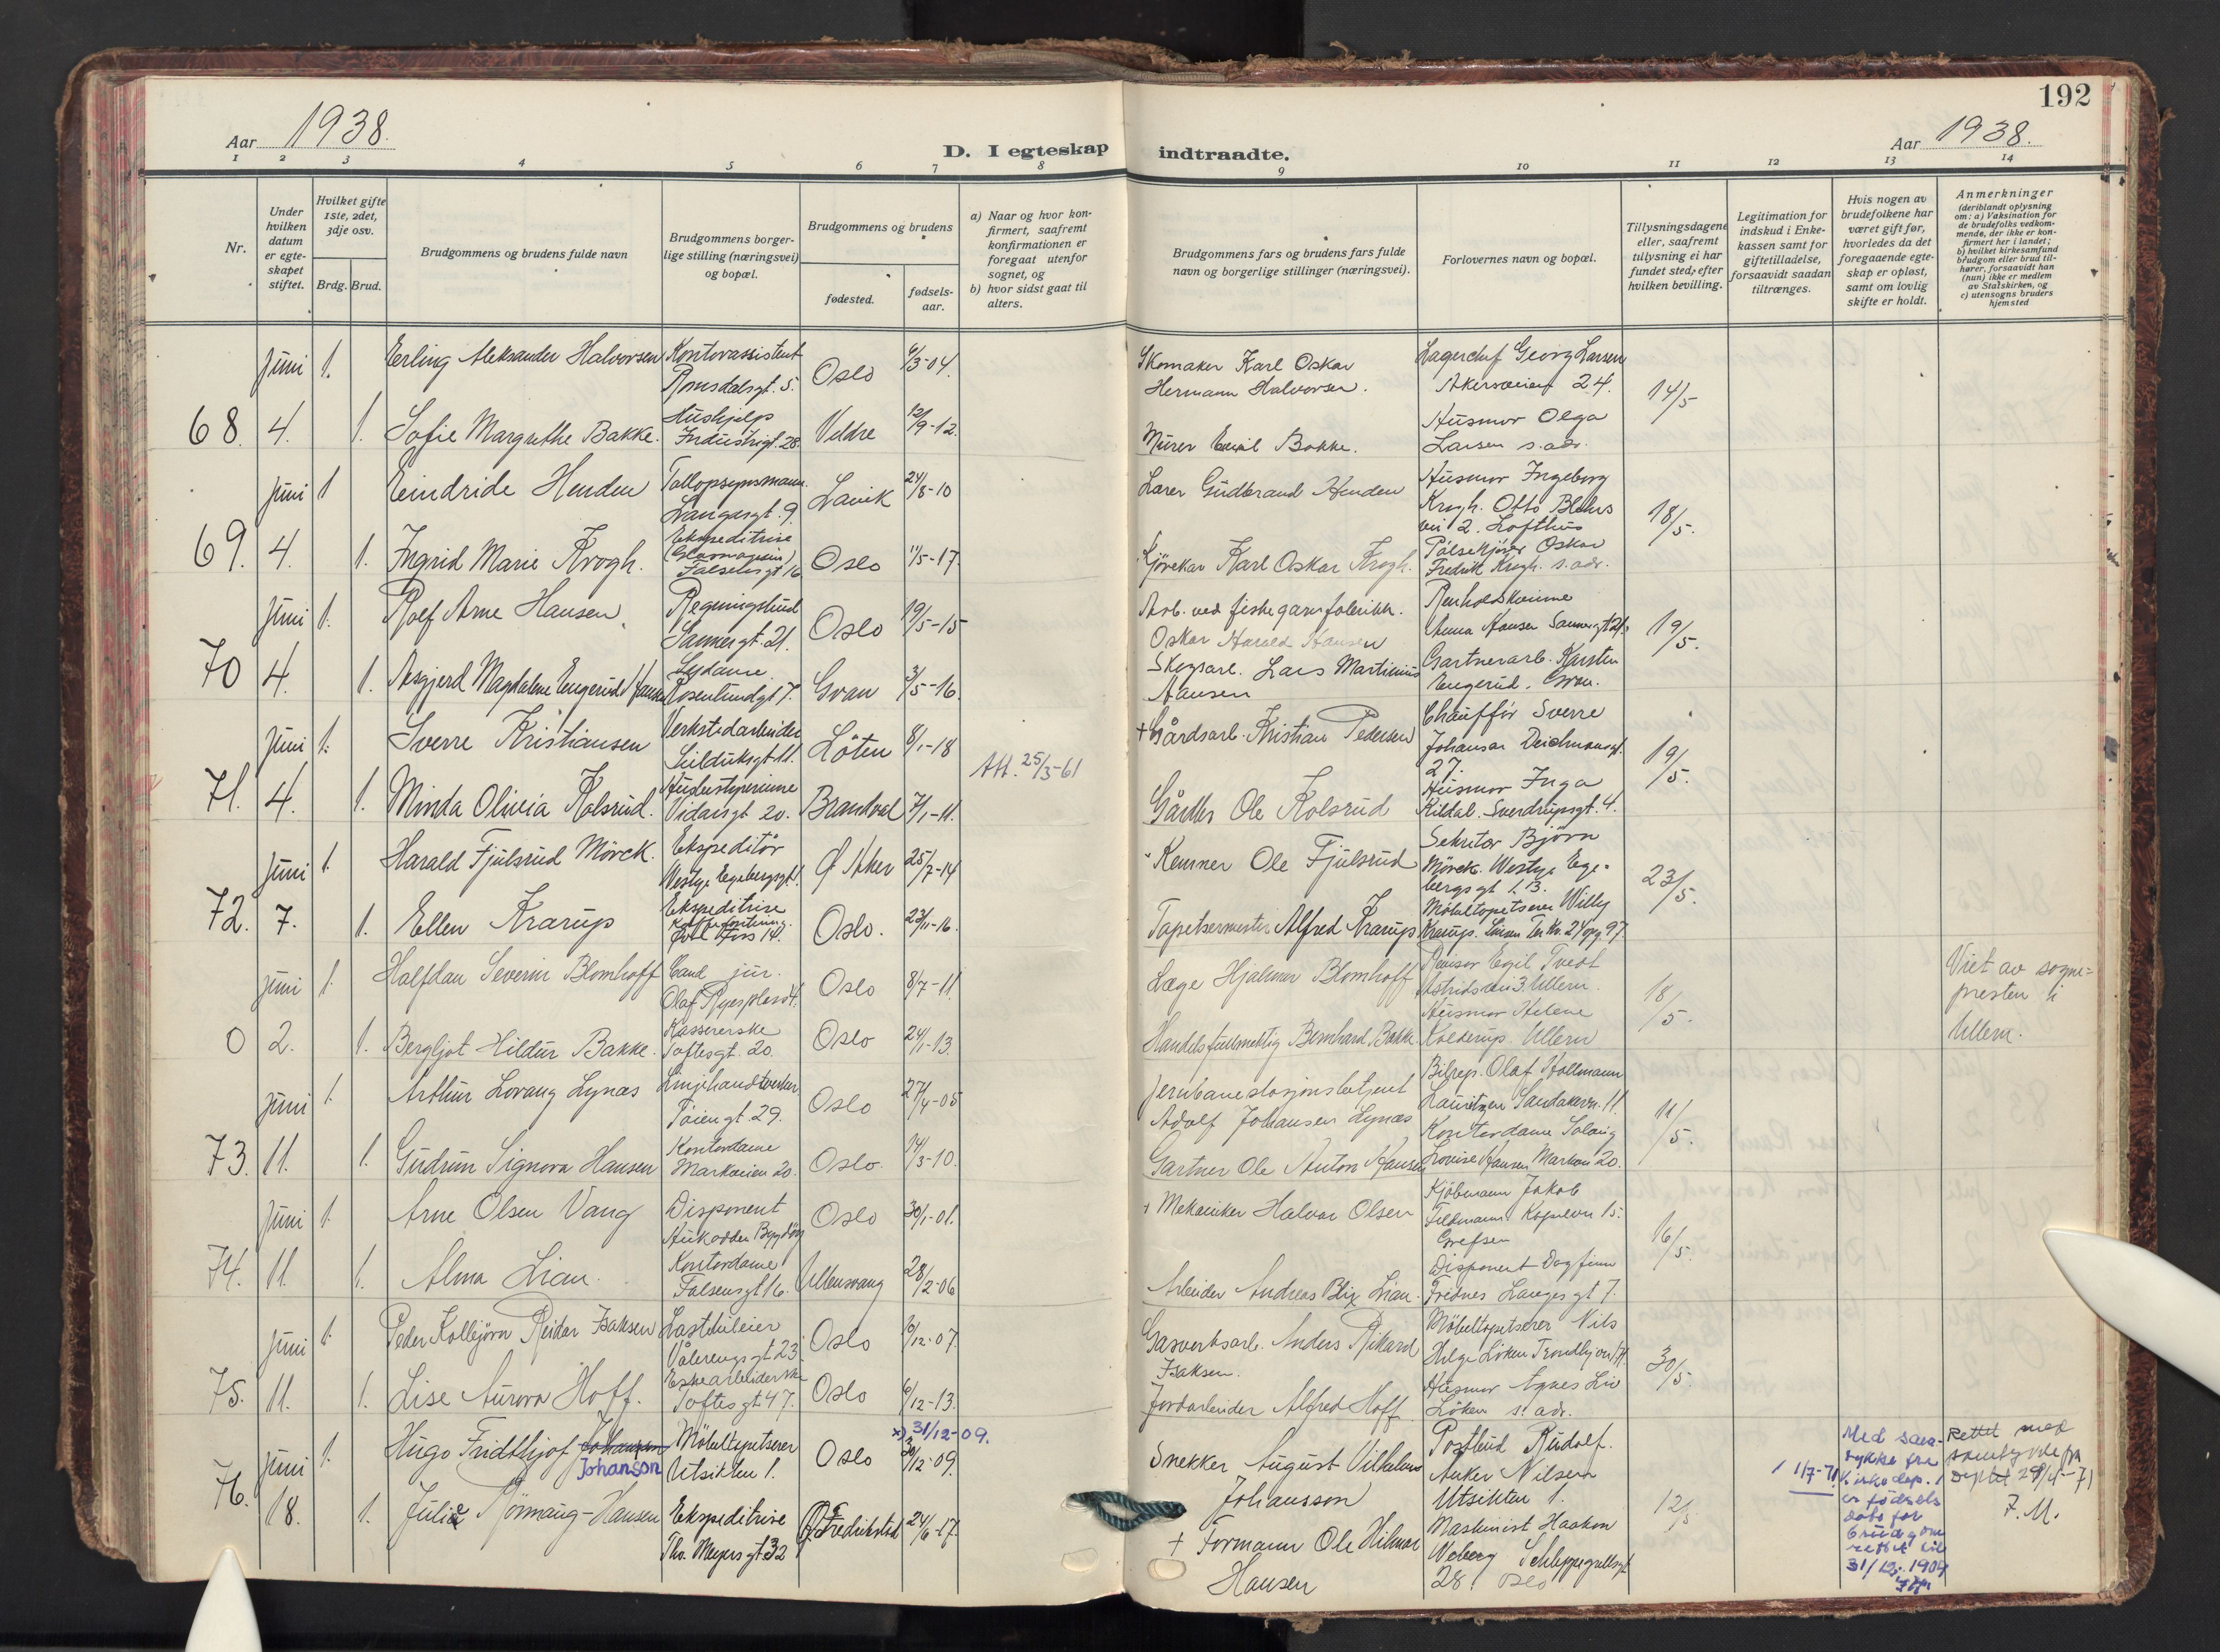 192
Aar 1938.
D. I egteskap indtraadte.
Aar 1938.
1 2 3 4 5 6 7 8 9 10 11 12 13 14
Nr.
Under hvilken datum er egteskapet stiftet.
Hvilket gifte 1ste, 2det, 3dje osv.
Brdg. Brud.
Brudgommens og brudens fulde navn
Brudgommens borgerlige stilling (næringsvei) og bopæl.
Brudgommens og brudens
fødested.
fødselsaar.
a) Naar og hvor konfirmert, saafremt konfirmationen er foregaat utenfor sognet, og
b) hvor sidst gaat til alters.
Brudgommens fars og brudens fars fulde navn og borgerlige stillinger (næringsvei).
Forlovernes navn og bopæl.
Tillysningsdagene eller, saafremt tillysning ei har fundet sted, efter hvilken bevilling.
Legitimation for indskud i Enkekassen samt for giftetilladelse, forsaavidt saadan tiltrænges.
Hvis nogen av brudefolkene har været gift før, hvorledes da det foregaaende egteskap er opløst, samt om lovlig skifte er holdt.
Anmerkninger
(deriblandt oplysning om: a) Vaksination for de brudefolks vedkommende, der ikke er konfirmert her i landet; b) hvilket kirkesamfund brudgom eller brud tilhører, forsaavidt han (hun) ikke er medlem av Statskirken, og c) utensogns bruders hjemsted
Juni 1. Erling Aleksander Halvorsen Kontorassistent Romsdalsgt. 5. Oslo 6/3-04. Skomaker Karl Oskar Hermann Halvorsen. Lagerchef Georg Larsen Akersveien 24. 14/5
68. 4. 1. Sofie Margrethe Bakke. Hushjelp Industrigt. 28. Veldre 12/9-12. Murer Emil Bakke. Husmor Olga Larsen s. adr.
Juni 1 Eindride Henden Tollopsynsmann. Langesgt. 9. Lavik 24/8-10 Lærer Gudbrand Henden Husmor Ingeborg Krogh. Otto Blehrs vei 2. Lofthus 18/5.
69. 4. 1. Ingrid Marie Krogh. Ekspeditrise Falsensgt 16 Oslo 11/5-17. Kjørekar Karl Oskar Krogh. Oskar Fredrik Krogh. s. adr.
Juni 1. Rolf Arne Hansen. Regningsbud Sannergt. 21. Oslo 19/5-15 Arb. ved fiskegarnfabrikk. Oskar Harald Hansen Renholdskvinne Anna Hansen Sannergt 21. 19/5.
70 4. 1. Asgjerd Magdalene Engerud Hansen Sydame. Rosenlundgt 7. Gran 3/5-16. Skogsarb. Lars Martinius Hansen Gartnerarb. Karsten Engerud. Gran.
Juni 1. Sverre Kristiansen Verkstedarbeider Seilduksgt 11. Löten 8/1-18 + Gårdsarb. Kristian Pedersen Chauffør Sverre Johansen Deichmansgt. 27. 19/5.
Att. 25/5-61
71. 4. 1. Minda Olivia Kolsrud. Vidarsgt 20. Brandval 7/1-11. Gårdbr Ole Kolsrud Husmor Inga Kildal. Sverdrupsgt. 4.
Juni 1. Harald Fjulsrud Mörck. Ekspeditör Westye Egebergsgt 1. Ø Aker 25/7-14 Kemner Ole Fjulsrud Sekretær Björn Mörck. Westye Egebergsgt 1 B. 23/5.
72. 7. 1. Ellen Krarup Ekspeditrise Oslo. 23/11-16. Tapetsermester Alfred Krarup Møbeltapetserer Willy Krarup.
Juni 1. Halfdan Severin Blomhoff Cand jur. Olaf Ryes plass 4. Oslo 8/7-11. Læge Hjalmar Blomhoff Revisor Egil Tvedt Astridsvei 3. Ullern. 18/5. Viet av sognepresten i Ullern.
0 2. 1. Bergljot Hildur Bakke. Kassererske Toftesgt. 20. Oslo 24/1-13. Handelsfullmektig Bernhard Bakke. Husmor Helene Kolderup Ullern
Juni 1. Arthur Lovang Lynæs Linjehandtverker Töiengt. 29. Oslo 27/4-05 Jernbanestasjonsbetjent Adolf Johansen Lynæs Bilrep. Olaf Hollmann Lauritzen Sandakervn. 11. 11/5.
73. 11. 1. Gudrun Signora Hansen Kontordame Markveien 20. Oslo. 14/3-10. Gartner Ole Anton Hansen Kontordame Solveig Lovise Hansen Markvn 20.
Juni 1. Arne Olsen Vang Disponent Oslo 30/1-01. + Mekaniker Halvor Olsen Kjöbmann Jakob Grefsen 16/5.
74. 11. 1. Alma Lian. Kontordame Falsensgt 16. Ullensvang 28/2-06 Arbeider Andreas Blix Lian. Disponent Dagfinn Langesgt 7.
Juni 1. Peder Kolbjörn Reidar Isaksen Lastebileier Vålerengsgt 23. Oslo 6/12-07. Gasverksarb. Anders Rikard Isaksen. Möbeltapetserer Nils Helge Löken 30/5.
75. 11. 1. Lise Aurora Hoff. Eskearbeiderske Toftesgt. 47. Oslo 6/12-13. Jordarbeider Alfred Hoff. Husmor Agnes Liv Löken s. adr.
x) 31/12-09.
Juni 1. Hugo Fridthjof Johansen Johanson Möbeltapetserer Utsikten 1. Oslo 30/12-09. Snekker August Vilhelm Johansson Postbud Rudolf Anker Nilsen Utsikten 1. 12/5
76. 18. 1. Julie Törmaug-Hansen Ekspeditrise Tho. Meyersgt 32 Fredrikstad 24/6-17. + Formann Ole Hilmar Hansen Maskinist Haakon Weberg Schleppegrellsgt 28. Oslo
1 1/7-71
Med samtykke fra Kirkedep. er fødselsdato for brudgom rettet til 31/12. 1909
Rettet med samtykke fra Dept 29/4-71
F. M.